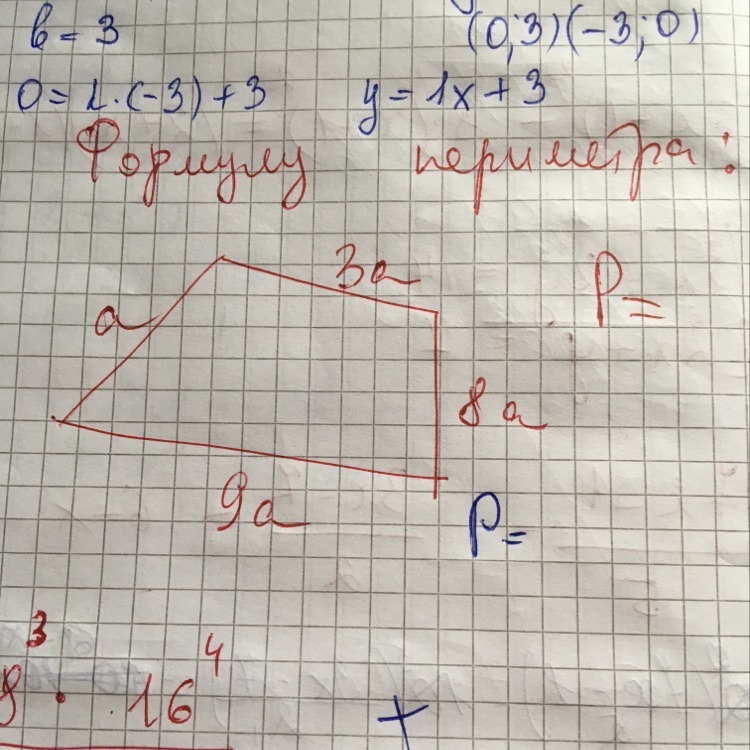 b = 3 (0;3)(-3;0)
0 = 1·(-3)+3 y = 1x+3
Формулу периметра:
3a
P=
a
8a
9a
P=
8³ · 16⁴